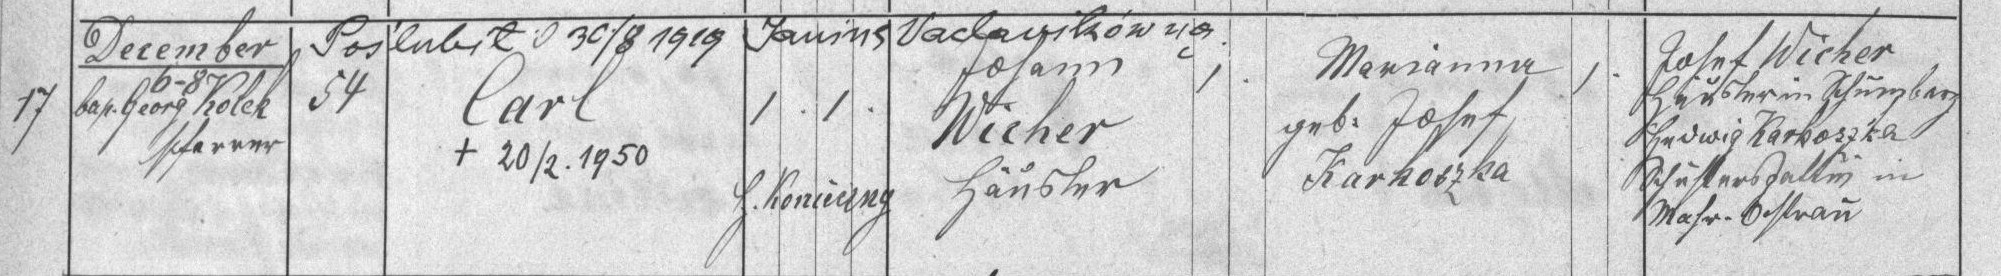 December
17
6-8
bap. Georg Kolek
Pfarrer
54
Poślubił 30/8 1919 Janinę Vaclavikównę
Carl
+ 20/2. 1950
1. 1.
H.
Johann
Wicher
Häusler
1.
Marianna
geb: Josef
Karkoszka
1.
Josef Wicher
Häusler in Schumbarg
Hedwig Karkoszka
Schustersgattin in
Mähr-Ostrau